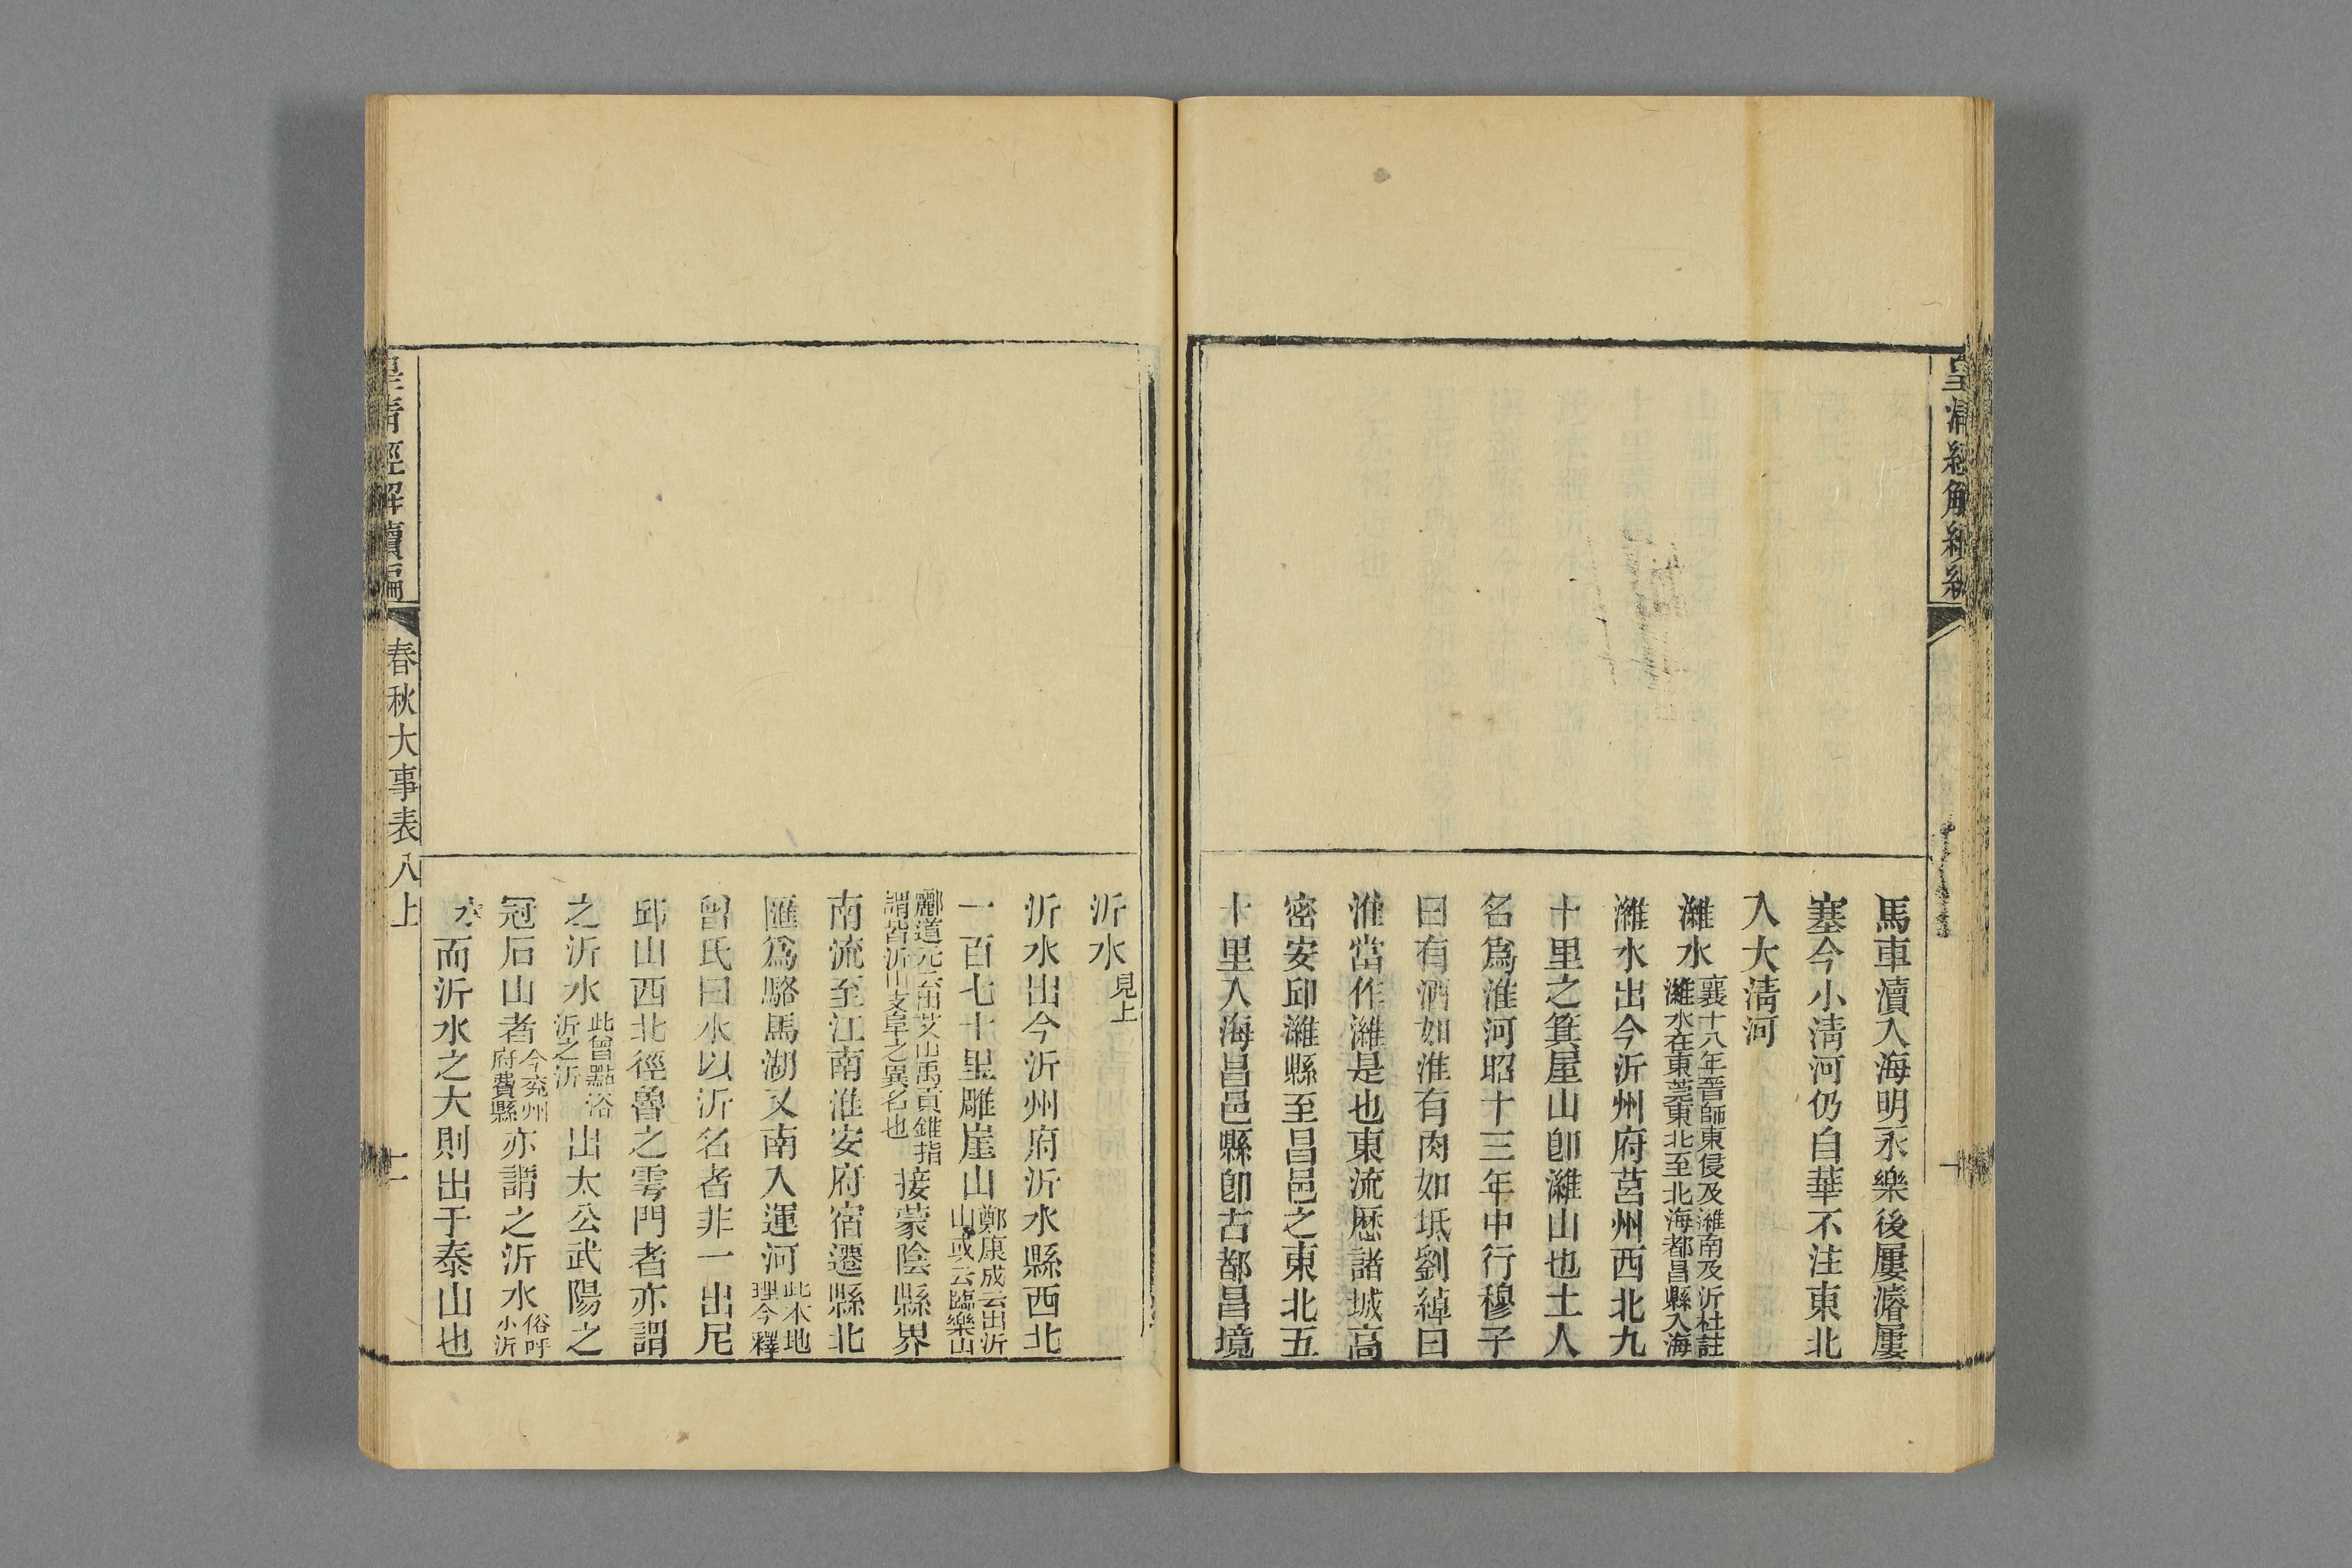 皇清經解續編
馬車瀆入海明永樂後屢濬屢
塞今小淸河仍自華不注東北
入大淸河
濰水襄十八年晉師東侵及濰南及沂杜註濰水在東莞東北至北海都昌縣入海
濰水出今沂州府莒州西北九
十里之箕屋山卽濰山也土人
名爲淮河昭十三年中行穆子
曰有酒如淮有肉如坻劉綽曰
淮當作濰是也東流歷諸城高
密安邱濰縣至昌邑之東北五
十里入海昌邑縣卽古都昌境
沂水見上
沂水出今沂州府沂水縣西北
一百七十里雕崖山鄭康成云出沂山或云臨樂山
酈道元云出艾山禹貢錐指謂皆沂山支阜之異名也接蒙陰縣界
南流至江南淮安府宿遷縣北
匯爲駱馬湖又南入運河此本地理今釋
曾氏曰水以沂名者非一出尼
邱山西北徑魯之雩門者亦謂
之沂水此曾點浴沂之沂出太公武陽之
冠石山者今兗州府費縣亦謂之沂水俗呼小沂
水而沂水之大則出于泰山也
皇淸經解續編
春秋大事表八上
十一